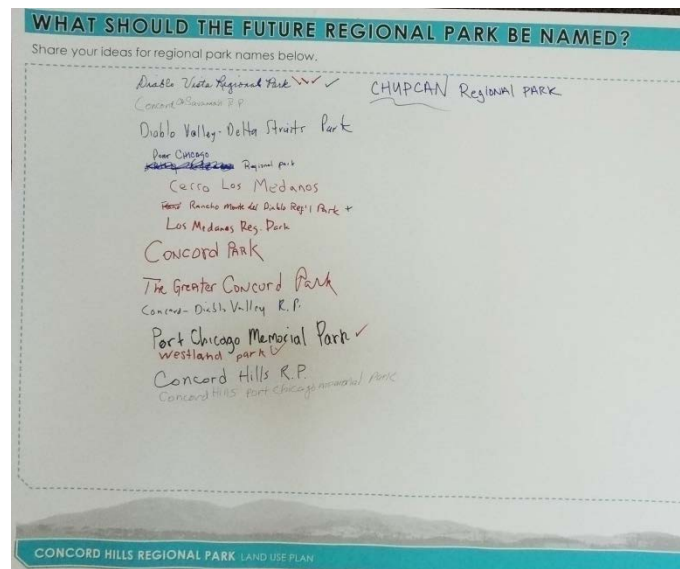 WHAT SHOULD THE FUTURE REGIONAL PARK BE NAMED?
Share your ideas for regional park names below.
Diablo Vista Regional Park ✓✓✓ ✓
Concord R P
Diablo Valley-Delta Straits Park
Port Chicago
Regional park
Cerro Los Medanos
Rancho Monte del Diablo Reg'l Park +
Los Medanos Reg. Park
CONCORD PARK
The Greater Concord Park
Concord-Diablo Valley R.P.
Port Chicago Memorial Park ✓
Westland park ✓
Concord Hills R.P.
Concord Hills Port Chicago memorial Park
CHUPCAN Regional PARK
CONCORD HILLS REGIONAL PARK LAND USE PLAN